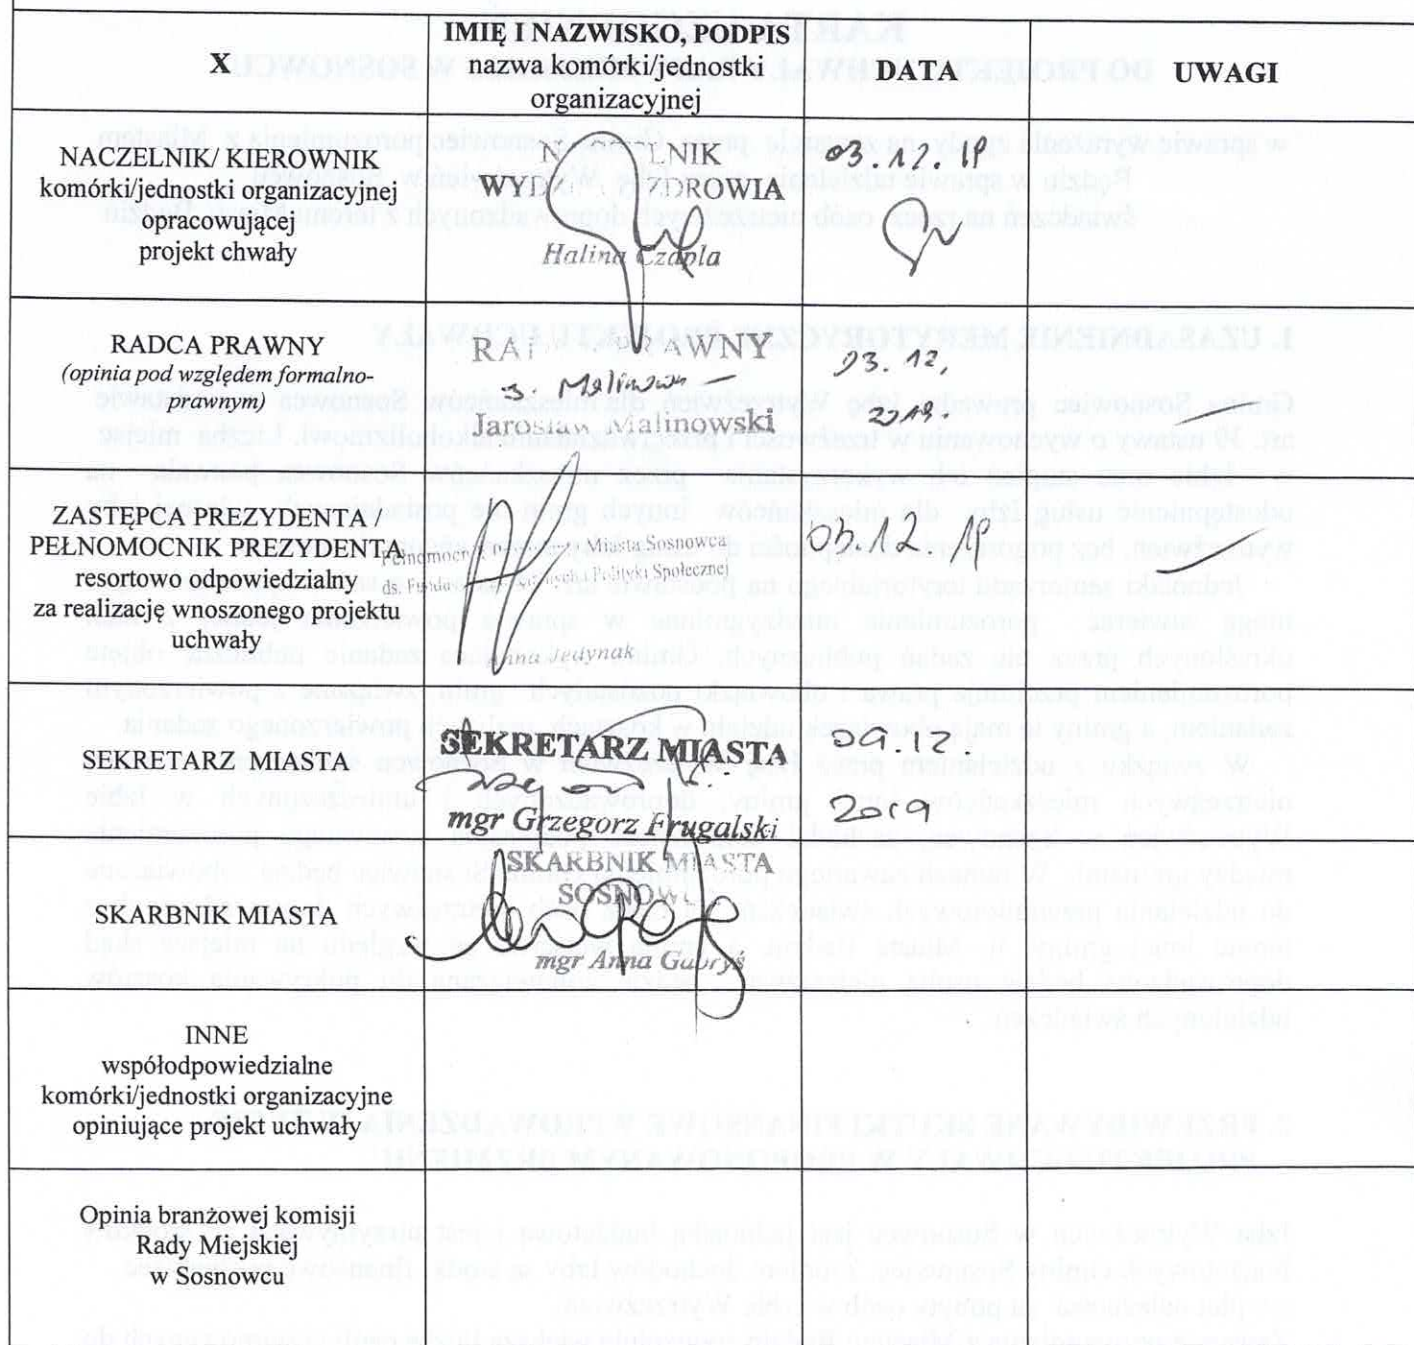 X
IMIĘ I NAZWISKO, PODPIS
nazwa komórki/jednostki
organizacyjnej
DATA
UWAGI
NACZELNIK/ KIEROWNIK
komórki/jednostki organizacyjnej
opracowującej
projekt chwały
WYDZ ZDROWIA
Halina Czapla
03.12.19
RADCA PRAWNY
(opinia pod względem formalno-
prawnym)
PRAWNY
J. Malinowski
Jarosław Malinowski
03.12.
2019
ZASTĘPCA PREZYDENTA /
PEŁNOMOCNIK PREZYDENTA
resortowo odpowiedzialny
za realizację wnoszonego projektu
uchwały
Pełnomocnik Miasta Sosnowca
ds. i Polityki Społecznej
Anna Jedynak
03.12.19
SEKRETARZ MIASTA
SEKRETARZ MIASTA
mgr Grzegorz Frugalski
09.12.
2019
SKARBNIK MIASTA
SKARBNIK MIASTA
mgr Anna Gabryś
INNE
współodpowiedzialne
komórki/jednostki organizacyjne
opiniujące projekt uchwały
Opinia branżowej komisji
Rady Miejskiej
w Sosnowcu